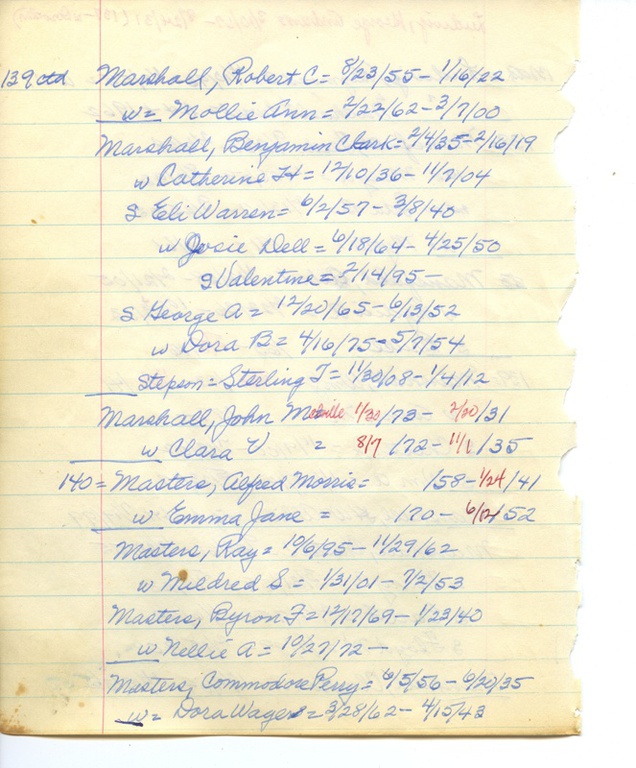 139 ctd Marshall, Robert C = 8/23/55 - 1/16/22
w = Mollie Ann = 2/22/62 - 3/7/00
Marshall, Benjamin Clark = 2/4/35 - 2/16/19
w Catherine H = 12/10/36 - 11/2/04
S Eli Warren = 6/2/57 - 3/8/40
w Josie Dell = 6/18/64 - 4/25/50
S Valentine = 2/14/95 -
S George A = 12/20/65 - 6/13/52
w Dora B = 4/16/75 - 5/7/54
Stepson = Sterling T = 11/30/08 - 1/4/12
Marshall, John Melville 1/30/73 - 2/20/31
w Clara V = 8/7/72 - 11/1/35
140 = Masters, Alfred Morris = /58 - 1/24/41
w Emma Jane = /70 - 52
Masters, Ray = 10/6/95 - 11/29/62
w Mildred S = 1/31/01 - 7/2/53
Masters, Byron F = 12/17/69 - 1/23/40
w Nellie A = 10/27/72 -
Masters, Commodore Perry = 6/5/56 - 6/20/35
w = Dora Wagers = 3/28/62 - 4/15/43